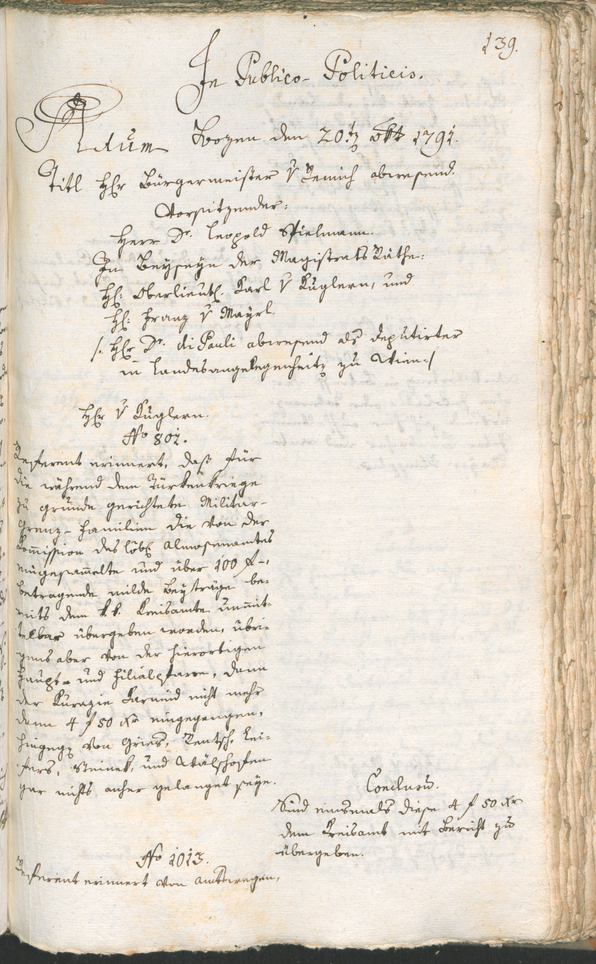 139.
In Publico-Politicis.
Actum Bozen den 20t 8br 1791.
Titl Hr Bürgermeister v Remich abwesend.
Vorsitzender:
Herr Dr. Leopold Spielmann.
In Beyseyn der Magistrats Räthe:
Hl: Oberlieut. Karl v Kuglern, und
Hl: Franz v Mayrl.
/: Hl Dr. di Pauli abwesend als deputirter
in Landesangelegenheit zu Wien :/
Hr v Kuglern.
No 801.
Referent erinnert, daß für
die während dem Türkenkriege
zu grunde gerichtete Militar-
Grenz-Familien die von der
Commission des löbl Almosenamtes
eingesammelte und über 100 f
betragende milde Beyträge be-
reits dem kk. Kreisamte unmit-
telbar übergeben worden, übri-
gens aber von der hierortigen
Haupt- und Filialpfarre, dann
der Kurazie Karneid nicht mehr
dann 4 f 50 Xr eingegangen,
hingegen von Gries, Rentsch, Lei-
fers, Steinek, und Wälschofen
gar nichts anher gelanget seye.
Conclusum.
Sind einsmals diese 4 f 50 Xr
dem Kreisamt mit Bericht zu
übergeben.
No 1013.
Referent erinnert von amtswegen,